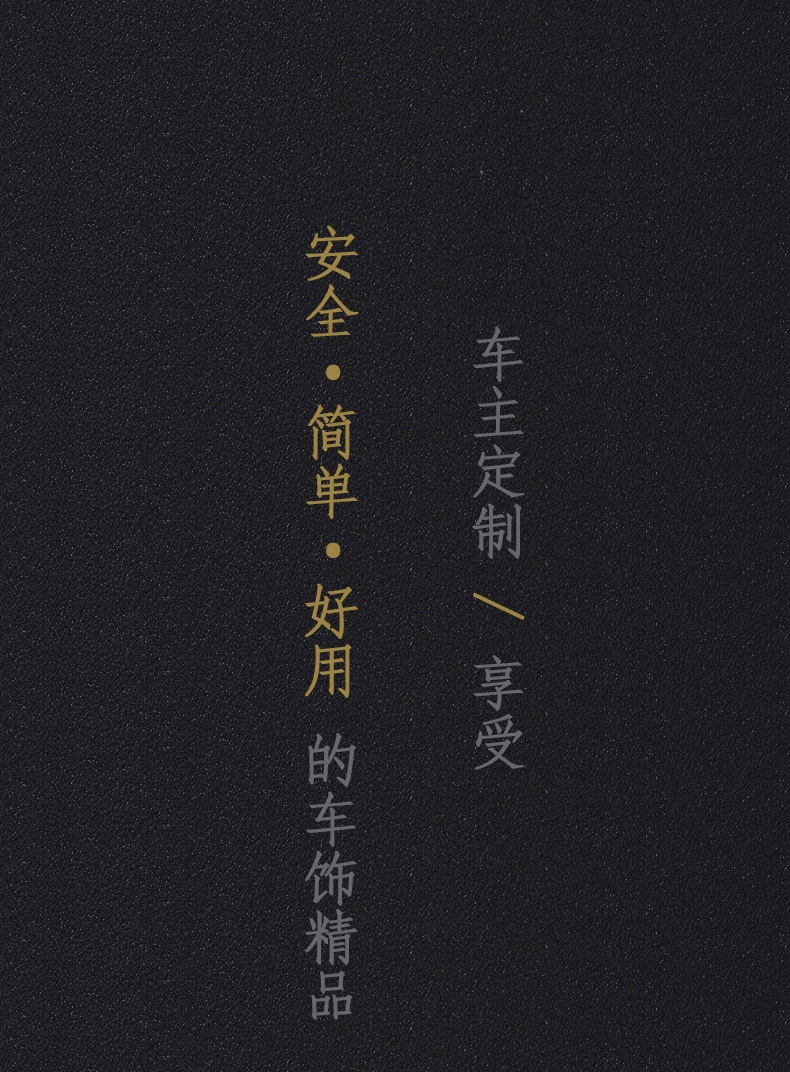 车主定制 / 享受
安全·简单·好用 的车饰精品